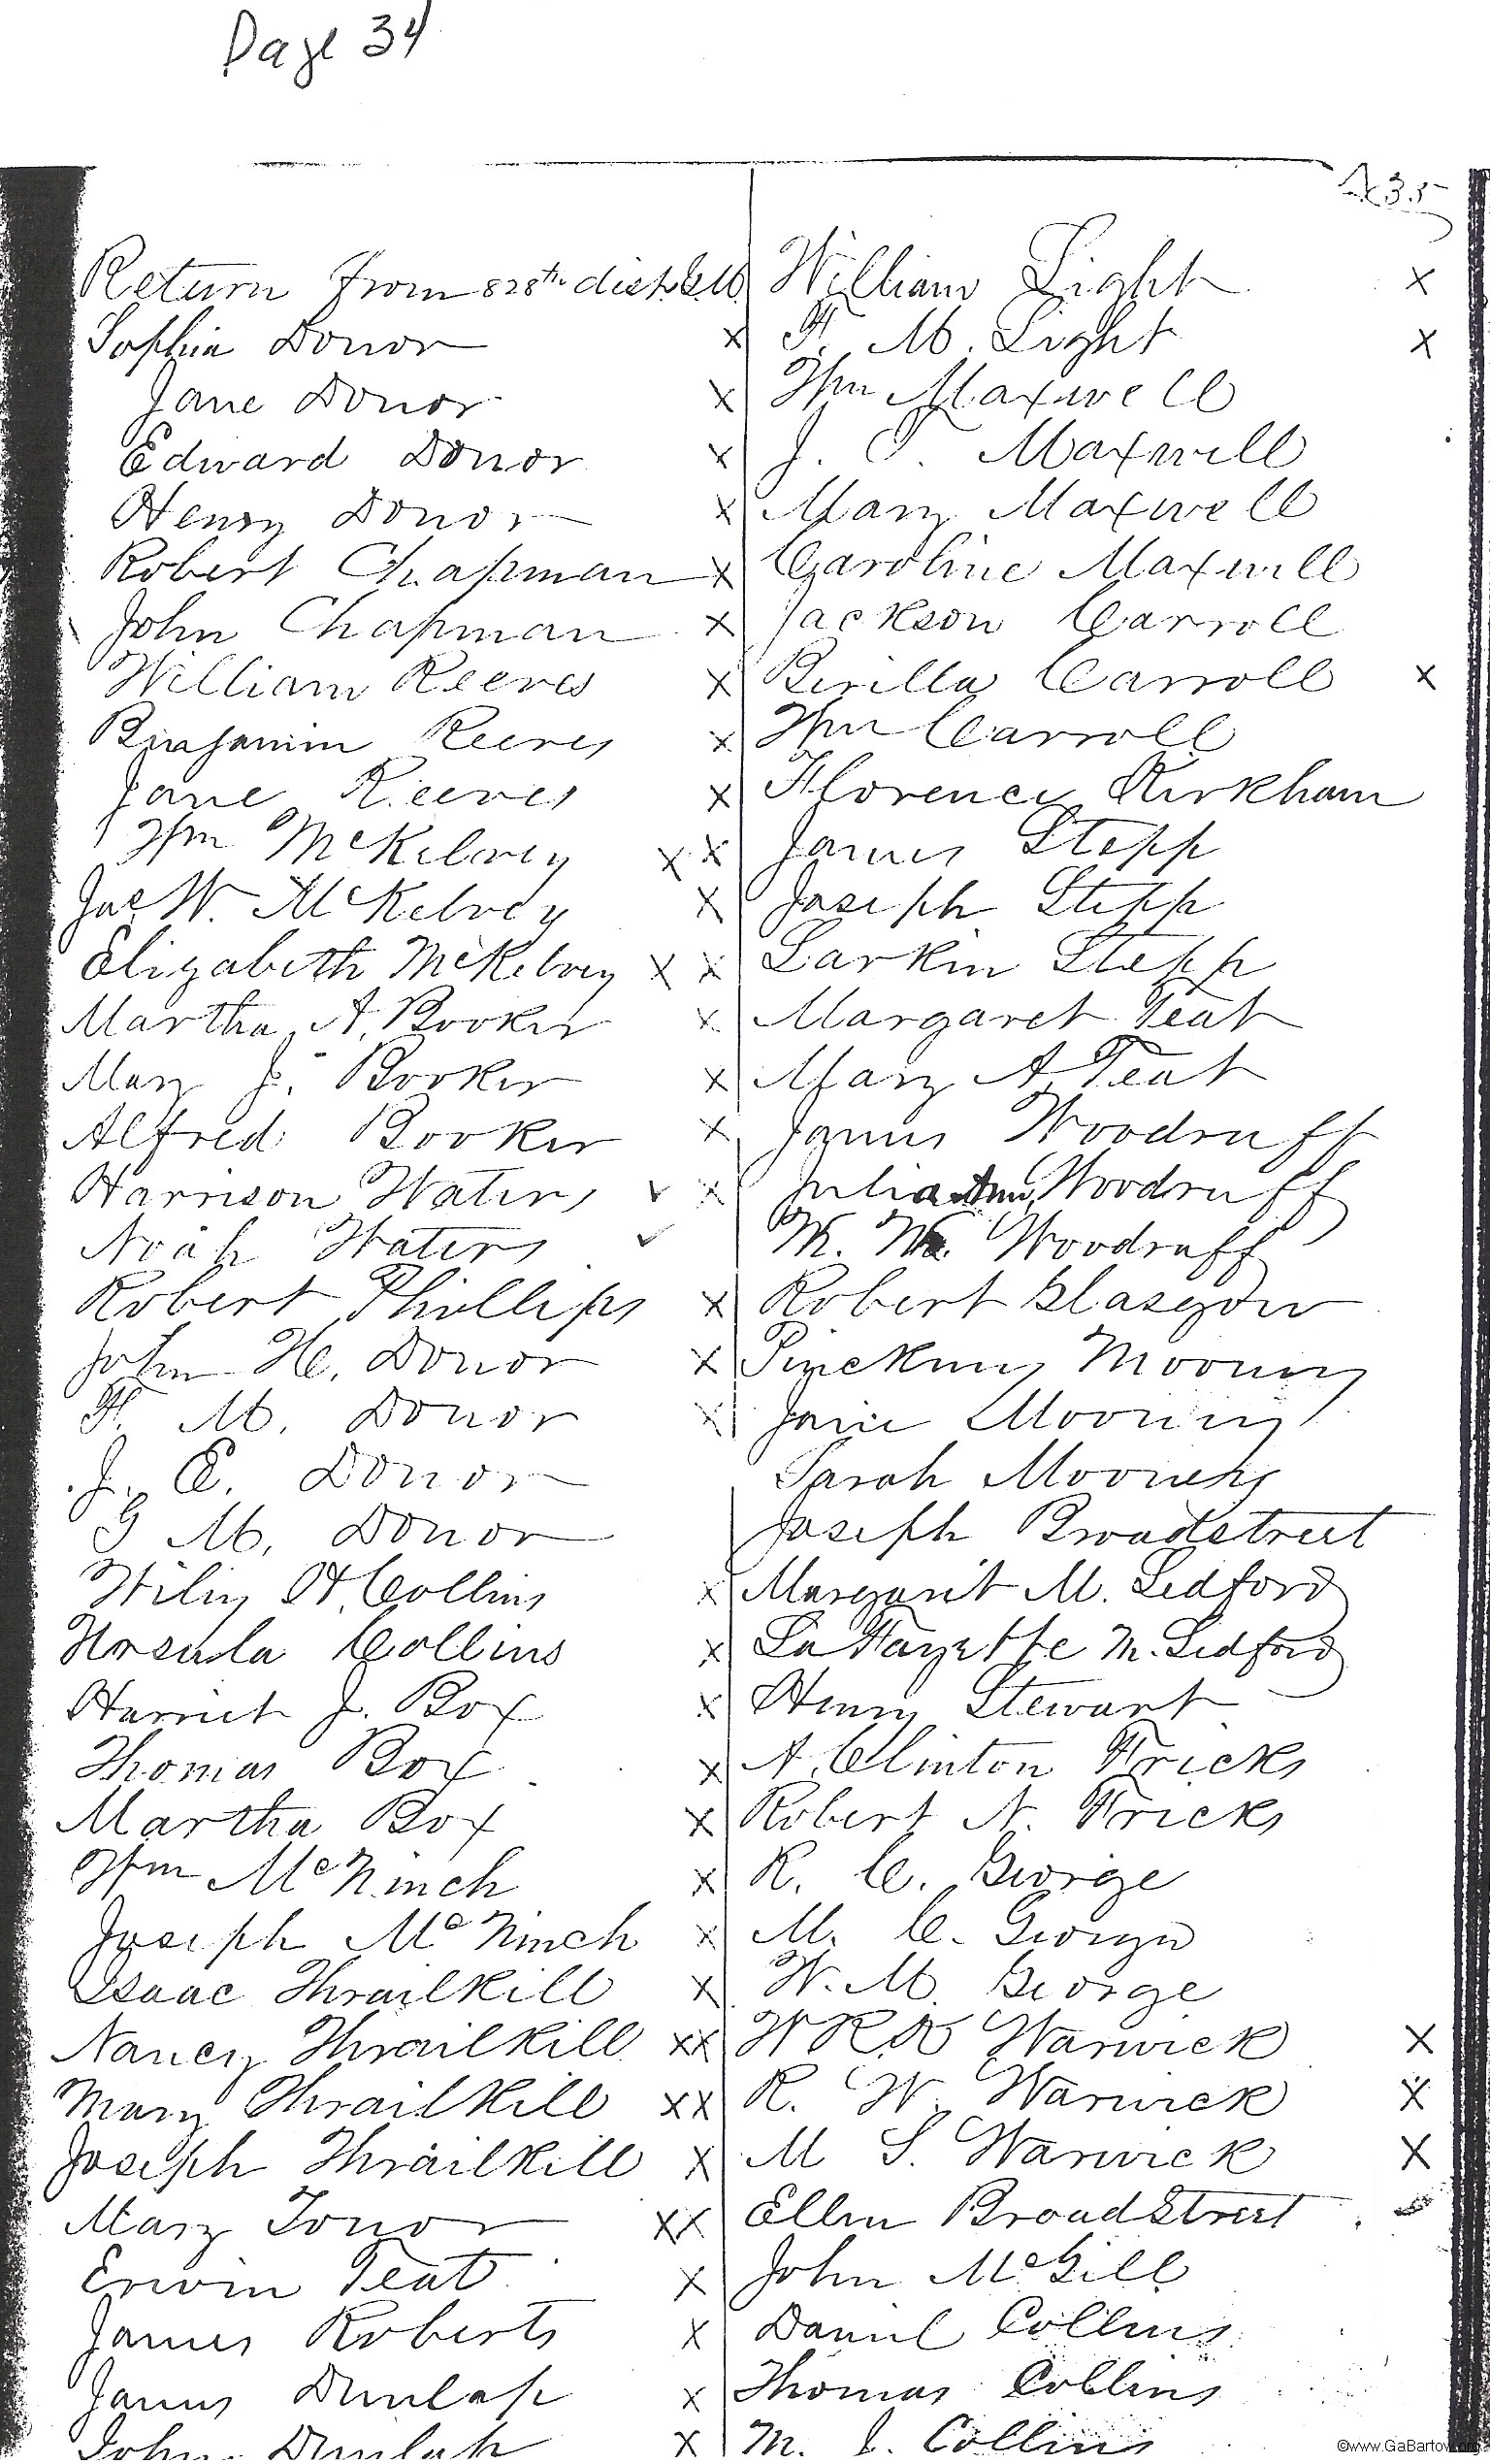 Page 34
Return from 828th dist. G.M.
Sophia Donor x
Jane Donor x
Edward Donor x
Henry Donor x
Robert Chapman x
John Chapman x
William Reeves x
Binjamin Reeves x
Jane Reeves x
Wm McKelvey x x
Jas W. McKelvey x
Elizabeth McKelvey x x
Martha A. Booker x
Mary J. Booker x
Alfred Booker x
Harrison Waters ✓ x
Noah Waters ✓
Robert Phillips x
John H. Donor x
F. M. Donor x
J. E. Donor
G M. Donor
Wiley H. Collins x
Ursula Collins x
Harriet J. Box x
Thomas Box x
Martha Box x
Wm McNinch x
Joseph McNinch x
Isaac Thrailkill x
Nancy Thrailkill xx
Mary Thrailkill xx
Joseph Thrailkill x
Mary Tonor xx
Erwin Teat x
James Roberts x
James Dunlap x
John Dunlap x
William Light x
F. M. Light x
Wm Maxwell
J. T. Maxwell
Mary Maxwell
Caroline Maxwell
Jackson Carroll
Birilla Carroll x
Wm Carroll
Florence Kirkham
James Stepp
Joseph Stepp
Larkin Stepp
Margaret Teat
Mary A. Teat
James Woodruff
Julia Ann Woodruff
M. Woodruff
Robert Glasgow
Pinckney Mooney
Jane Mooney
Sarah Mooney
Joseph Broadstreet
Margarit M. Ledford
LaFayette M. Ledford
Henry Stewart
A. Clinton Fricks
Robert N. Fricks
R. C. George
M. C. George
W. M. George
W R D Warwick x
R. W. Warwick x
M S. Warwick x
Ellen BroadStreet
John McGill
Daniel Collins
Thomas Collins
M. J. Collins
©www.GaBartow.org